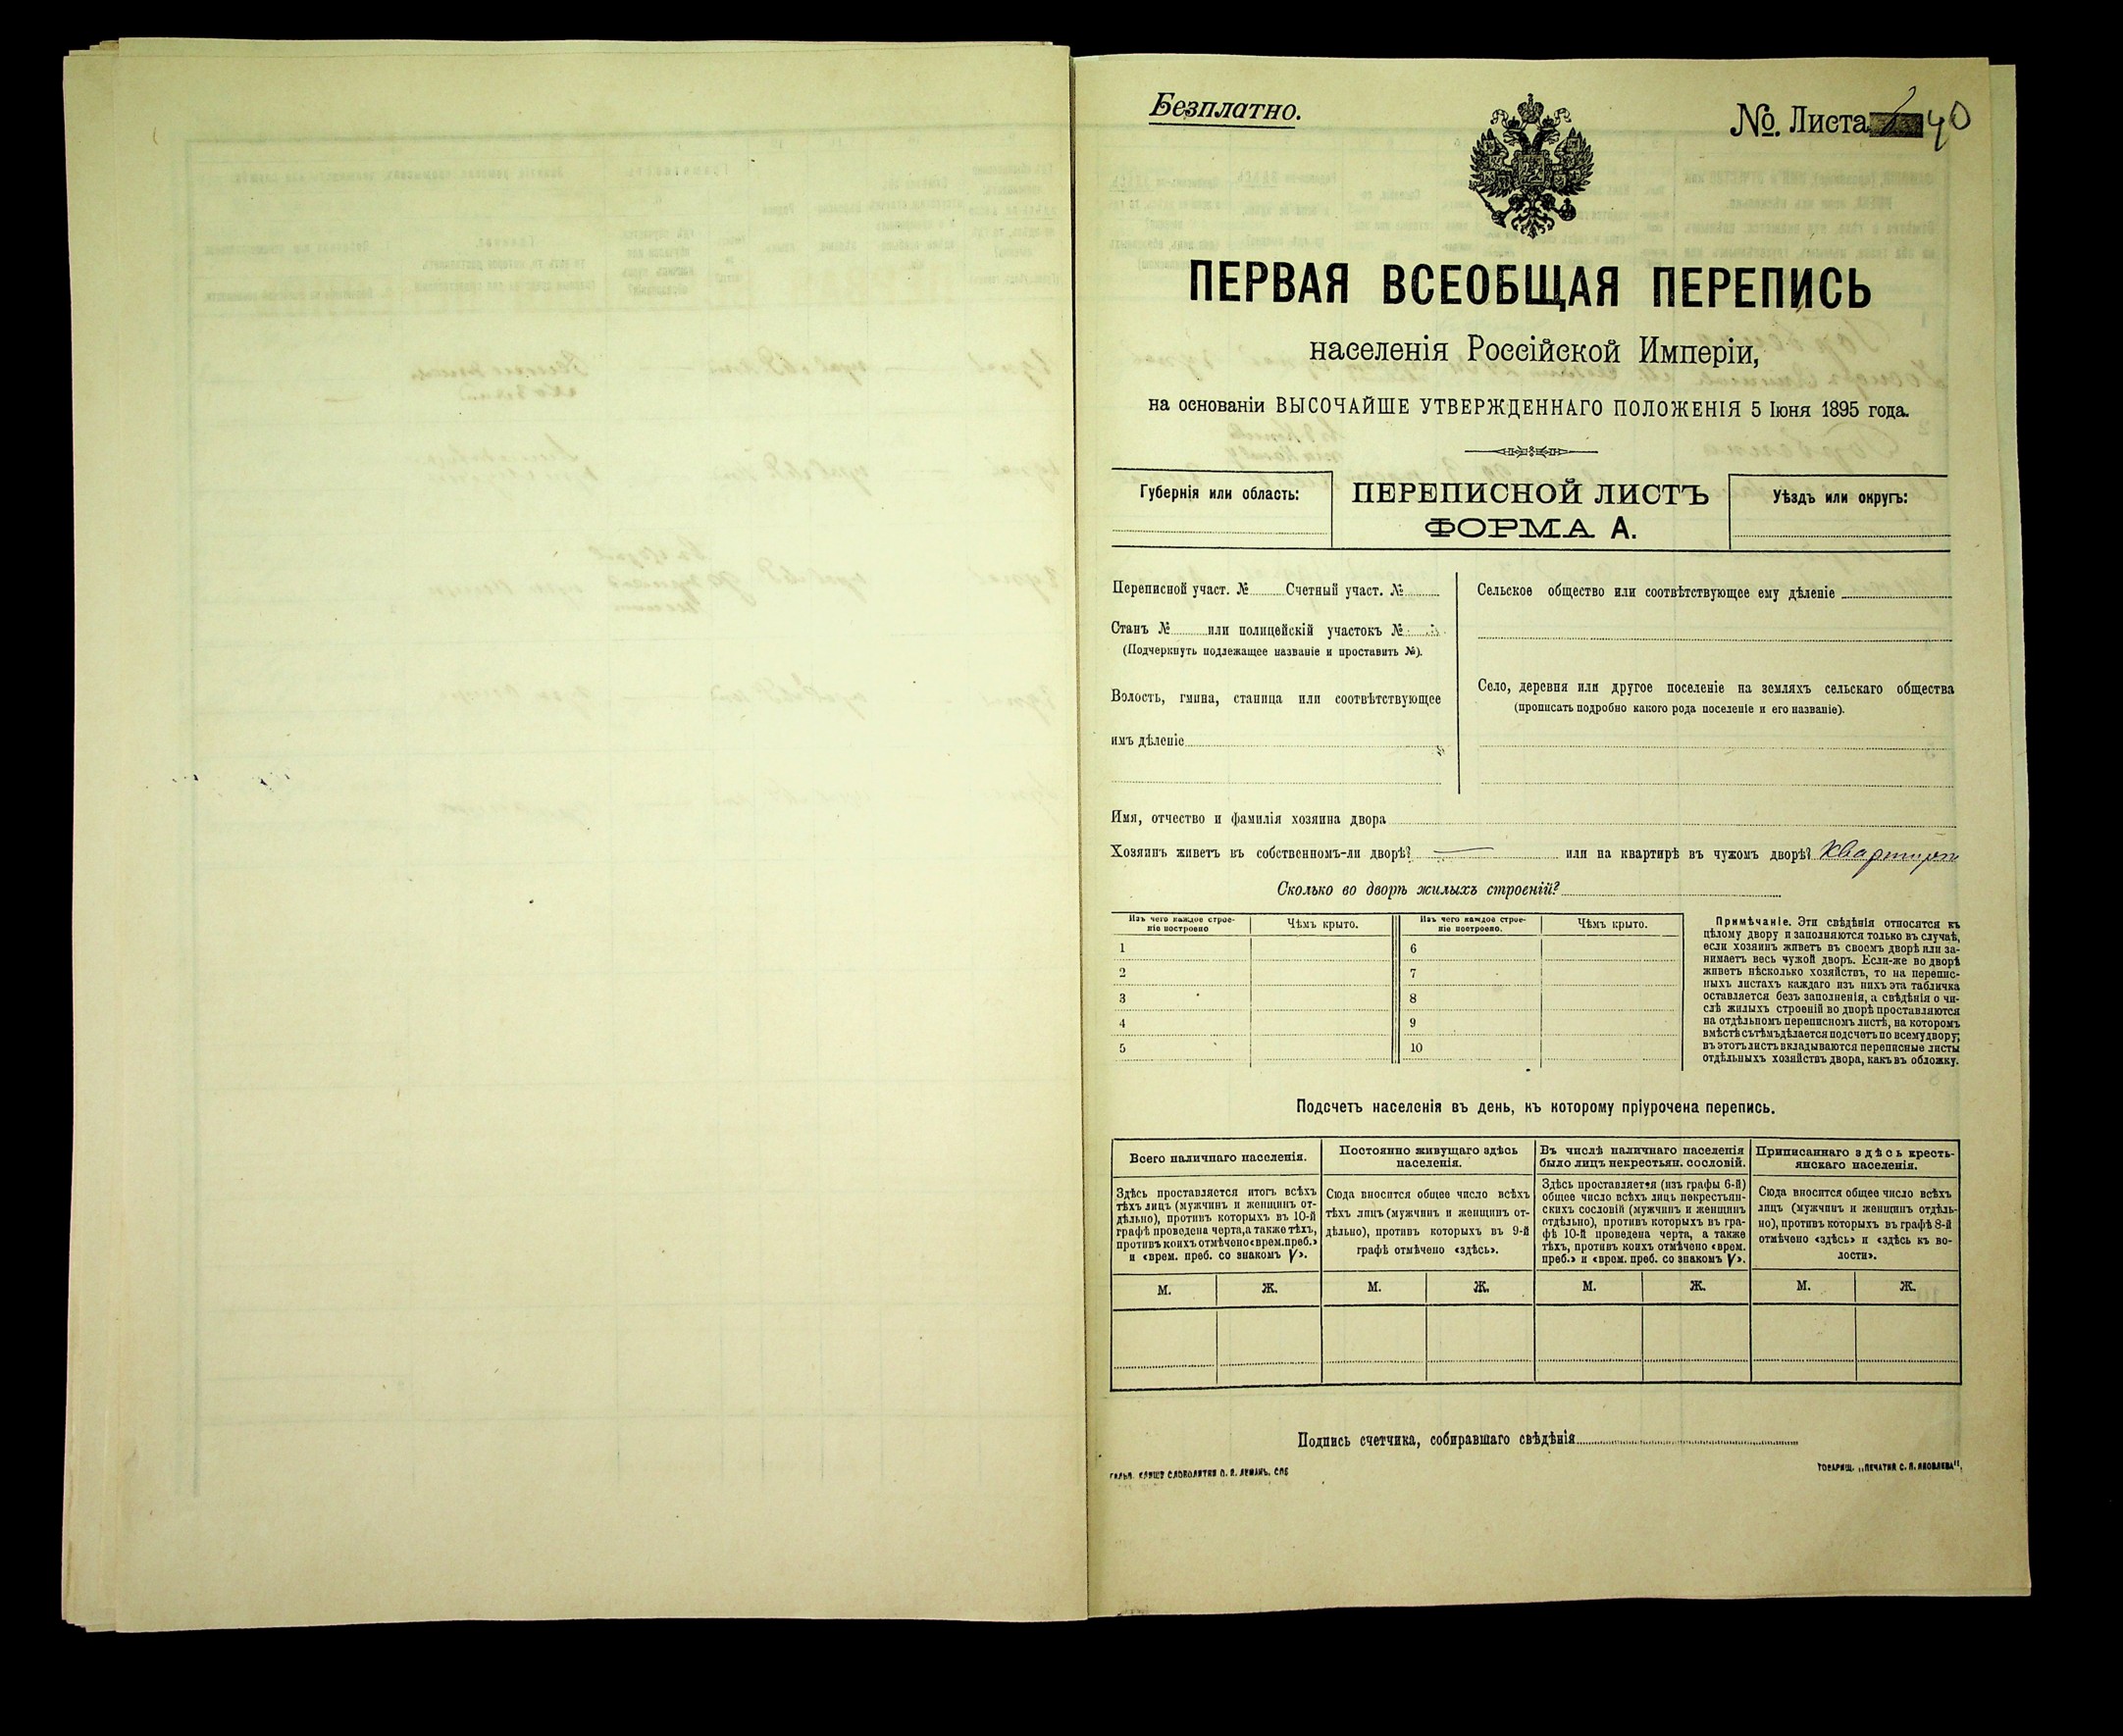 Безплатно.
№. Листа 40
ПЕРВАЯ ВСЕОБЩАЯ ПЕРЕПИСЬ
населенія Россійской Имперіи,
на основаніи ВЫСОЧАЙШЕ УТВЕРЖДЕННАГО ПОЛОЖЕНІЯ 5 Іюня 1895 года.
Губернія или область:
ПЕРЕПИСНОЙ ЛИСТЪ
ФОРМА А.
Уѣздъ или округъ:
Переписной участ. № Счетный участ. №
Станъ № или полицейскій участокъ №
(Подчеркнуть подлежащее названіе и проставить №).
Волость, гмина, станица или соотвѣтствующее
имъ дѣленіе
Сельское общество или соотвѣтствующее ему дѣленіе
Село, деревня или другое поселеніе на земляхъ сельскаго общества
(прописать подробно какого рода поселеніе и его названіе).
Имя, отчество и фамилія хозяина двора
Хозяинъ живетъ въ собственномъ-ли дворѣ? — или на квартирѣ въ чужомъ дворѣ?
Сколько во дворѣ жилыхъ строеній?
Изъ чего каждое строе-
ніе построено
Чѣмъ крыто.
Изъ чего каждое строе-
ніе построено.
Чѣмъ крыто.
1 6
2 7
3 8
4 9
5 10
Примѣчаніе. Эти свѣдѣнія относятся къ
цѣлому двору и заполняются только въ случаѣ,
если хозяинъ живетъ въ своемъ дворѣ или за-
нимаетъ весь чужой дворъ. Если-же во дворѣ
живетъ нѣсколько хозяйствъ, то на перепис-
ныхъ листахъ каждаго изъ нихъ эта табличка
оставляется безъ заполненія, а свѣдѣнія о чи-
слѣ жилыхъ строеній во дворѣ проставляются
на отдѣльномъ переписномъ листѣ, на которомъ
вмѣстѣ съ тѣмъ дѣлается подсчетъ по всему двору;
въ этотъ листъ вкладываются переписные листы
отдѣльныхъ хозяйствъ двора, какъ въ обложку.
Подсчетъ населенія въ день, къ которому пріурочена перепись.
Всего наличнаго населенія.
Здѣсь проставляется итогъ всѣхъ
тѣхъ лицъ (мужчинъ и женщинъ от-
дѣльно), противъ которыхъ въ 10-й
графѣ проведена черта, а также тѣхъ,
противъ коихъ отмѣчено «врем. преб.»
и «врем. преб. со знакомъ V».
Постоянно живущаго здѣсь
населенія.
Сюда вносится общее число всѣхъ
тѣхъ лицъ (мужчинъ и женщинъ от-
дѣльно), противъ которыхъ въ 9-й
графѣ отмѣчено «здѣсь».
Въ числѣ наличнаго населенія
было лицъ некрестьян. сословій.
Здѣсь проставляется (изъ графы 6-й)
общее число всѣхъ лицъ некрестьян-
скихъ сословій (мужчинъ и женщинъ
отдѣльно), противъ которыхъ въ гра-
фѣ 10-й проведена черта, а также
тѣхъ, противъ коихъ отмѣчено «врем.
преб.» и «врем. преб. со знакомъ V».
Приписаннаго здѣсь кресть-
янскаго населенія.
Сюда вносится общее число всѣхъ
лицъ (мужчинъ и женщинъ отдѣль-
но), противъ которыхъ въ графѣ 8-й
отмѣчено «здѣсь» и «здѣсь къ во-
лости».
М. Ж. М. Ж. М. Ж. М. Ж.
Подпись счетчика, собиравшаго свѣдѣнія
ТОВАРИЩ. „ПЕЧАТНЯ С. П. ЯКОВЛЕВА".